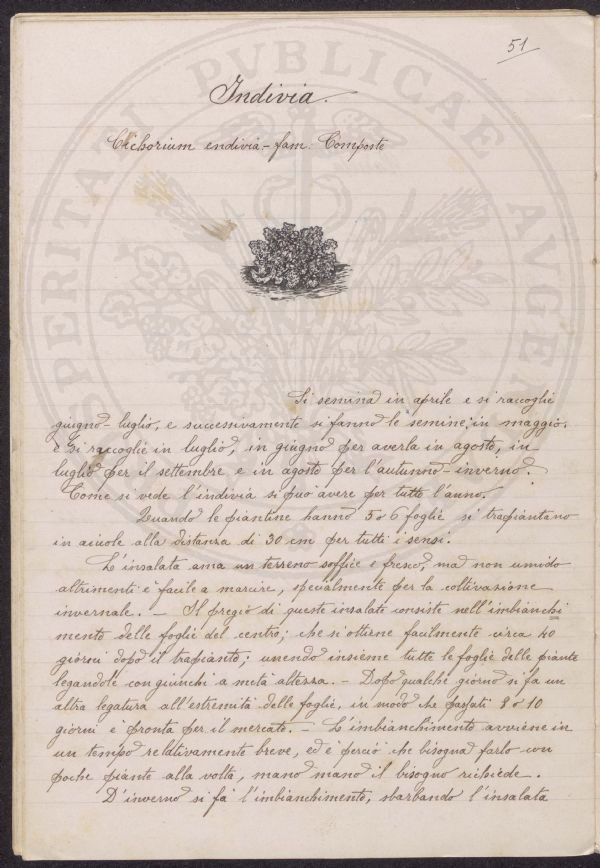 51
Indivia.
Cichorium endivia - fam: Composte
Si semina in aprile e si raccoglie
giugno-luglio, e successivamente si fanno le semine; in maggio.
e si raccoglie in luglio, in giugno per averla in agosto, in
luglio per il settembre e in agosto per l'autunno-inverno.
Come si vede l'indivia si può avere per tutto l'anno.
Quando le piantine hanno 5 o 6 foglie si trapiantano
in aiuole alla distanza di 30 cm per tutti i sensi.
L'insalata ama un terreno soffice e fresco, ma non umido
altrimenti è facile a marcire, specialmente per la coltivazione
invernale. — Il pregio di queste insalate consiste nell'imbianchi
mento delle foglie del centro; che si ottiene facilmente circa 40
giorni dopo il trapianto; unendo insieme tutte le foglie delle piante
legandole con giunchi a metà altezza. — Dopo qualche giorno si fa un
altra legatura all'estremità delle foglie, in modo che passati 8 o 10
giorni è pronta per il mercato. — L'imbianchimento avviene in
un tempo relativamente breve, ed è perciò che bisogna farlo con
poche piante alla volta, mano mano il bisogno richiede.
D'inverno si fa l'imbianchimento, sbarbando l'insalata
PROSPERITATI PUBLICAE AVGENDAE